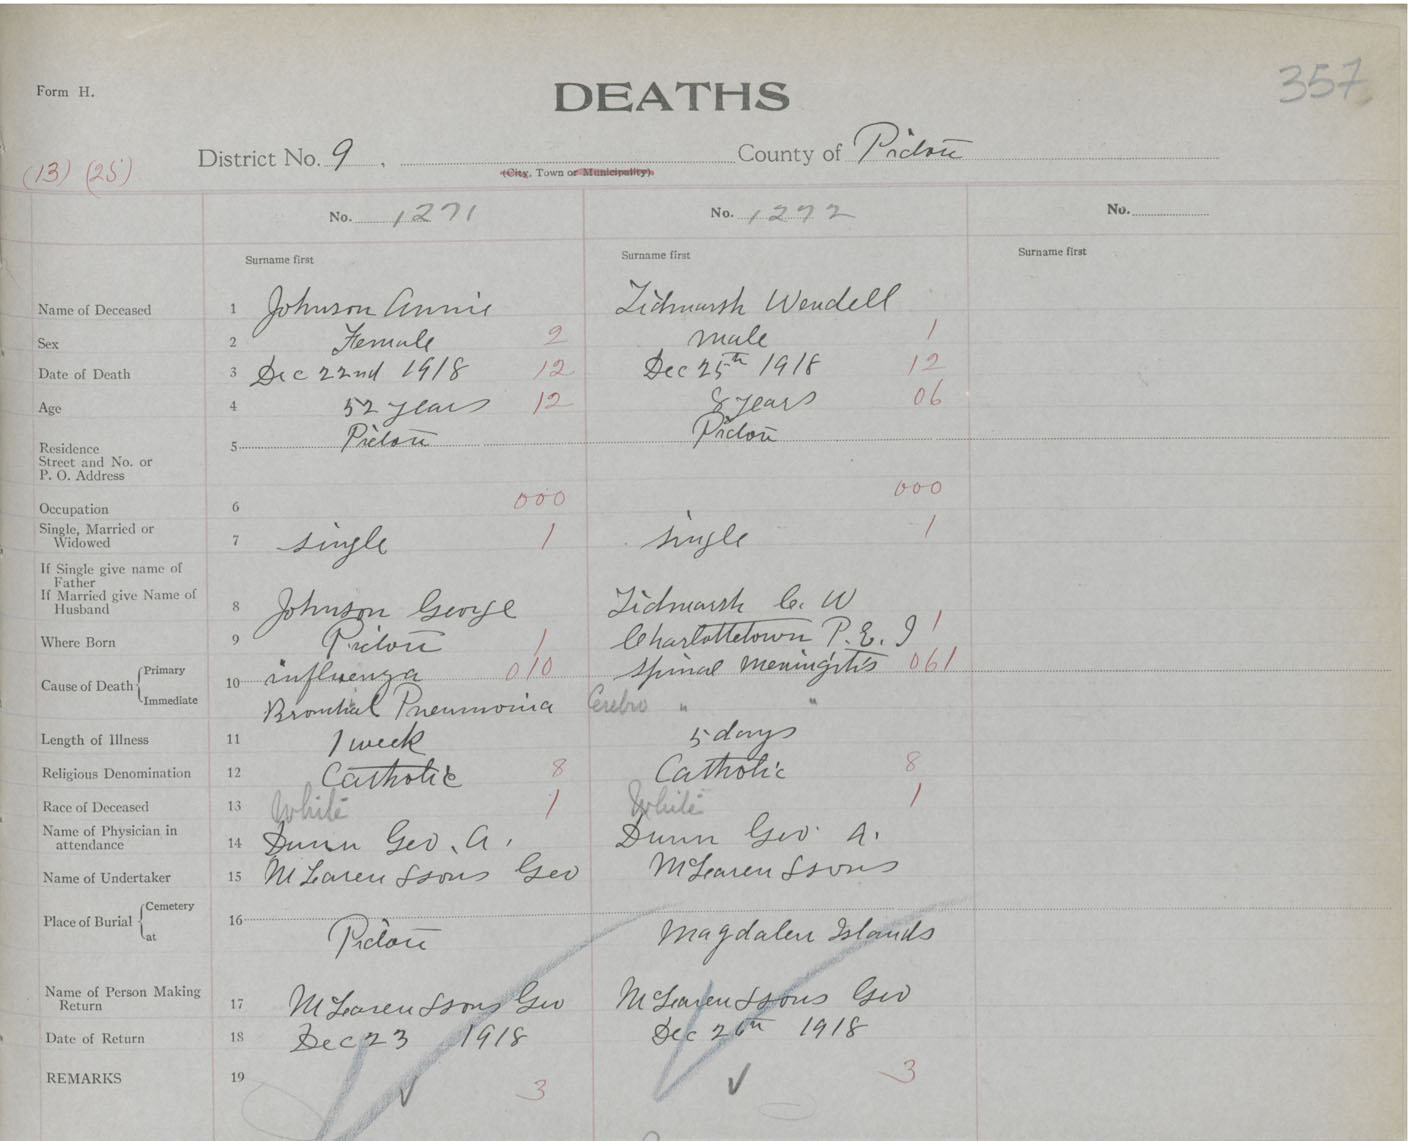 Form H.
DEATHS
357
District No. 9 , County of Pictou
(City, Town or Municipality)
(13) (25)
No. 1271 No. 1272 No.
Surname first Surname first Surname first
Name of Deceased 1 Johnson Annie Tidmarsh Wendell
Sex 2 Female 2 male 1
Date of Death 3 Dec 22nd 1918 12 Dec 25th 1918 12
Age 4 52 years 12 8 years 06
Residence 5 Pictou Pictou
Street and No. or
P. O. Address
Occupation 6 000 000
Single, Married or
Widowed 7 single 1 single 1
If Single give name of
Father
If Married give Name of
Husband 8 Johnson George Tidmarsh C. W
Where Born 9 Pictou 1 Charlottetown P. E. I 1
Cause of Death Primary 10 influenza 010 spinal meningitis 061
Immediate Bronchial Pneumonia Cerebro " "
Length of Illness 11 1 week 5 days
Religious Denomination 12 Catholic 8 Catholic 8
Race of Deceased 13 White 1 White 1
Name of Physician in
attendance 14 Dunn Geo. A. Dunn Geo. A.
Name of Undertaker 15 McLaren & sons Geo McLaren & sons
Place of Burial Cemetery 16
at Pictou Magdalen Islands
Name of Person Making
Return 17 McLaren & sons Geo McLaren & sons Geo
Date of Return 18 Dec 23 1918 Dec 26th 1918
REMARKS 19 ✓ 3 ✓ 3